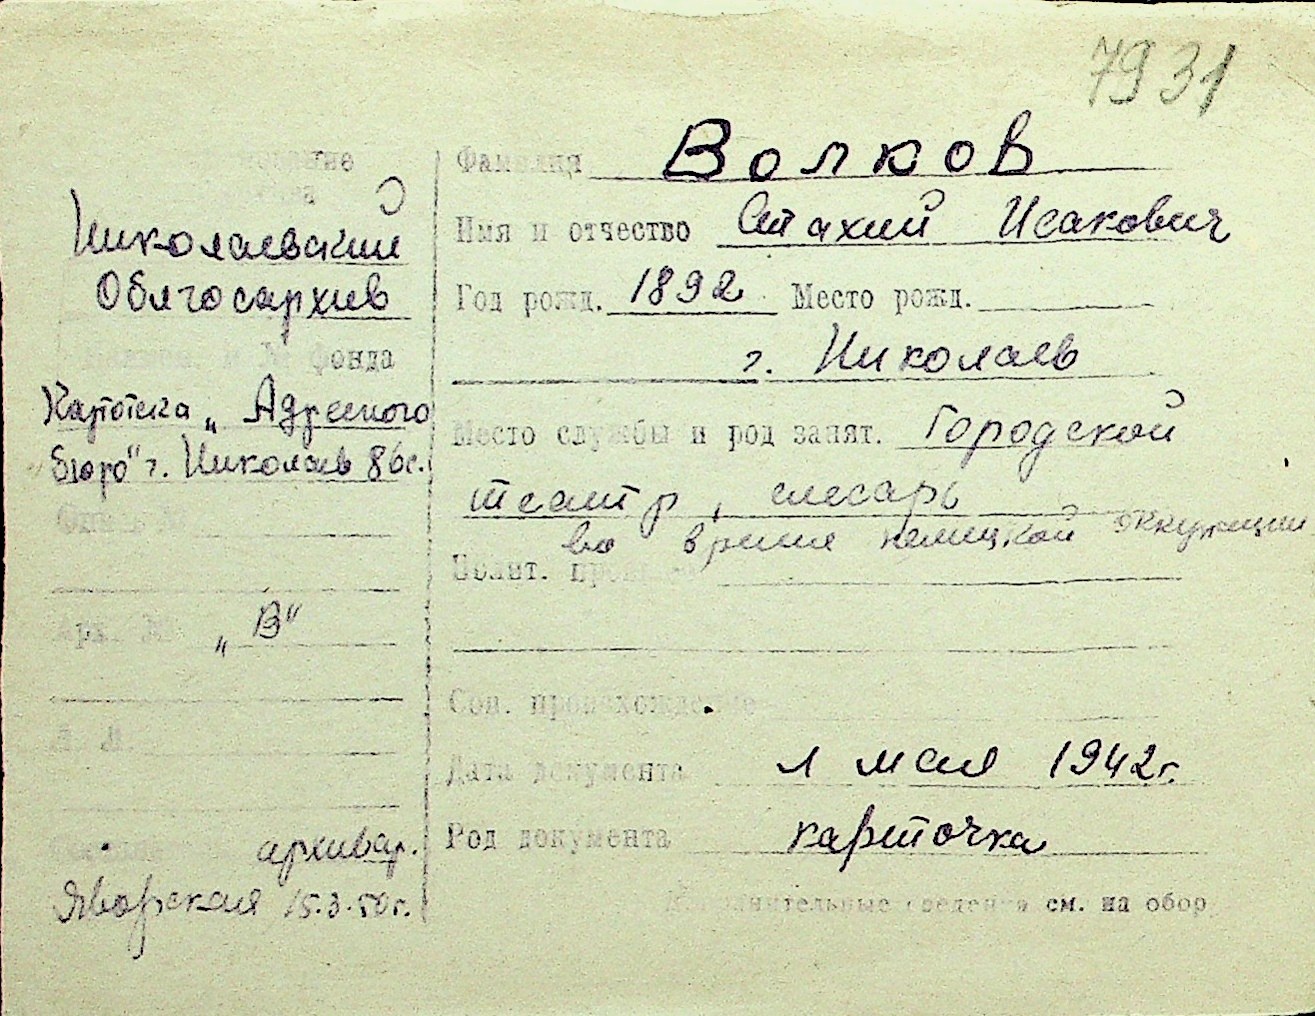 7931
Фамилия Волков
Имя и отчество Стахий Исакович
Год рожд. 1892 Место рожд.
г. Николаев
Место службы и род занят. Городской
театр, слесарь
во время немецкой оккупации
Полит. прошлое
Соц. происхождение
Дата документа 1 мая 1942г.
Род документа карточка
Дополнительные сведения см. на обор
Николаевский
Облгосархив
фонда
Картотека „Адресного
бюро" г. Николаев
Опись №
Арх. № „В"
архивар.
Яворская 15.3.50г.